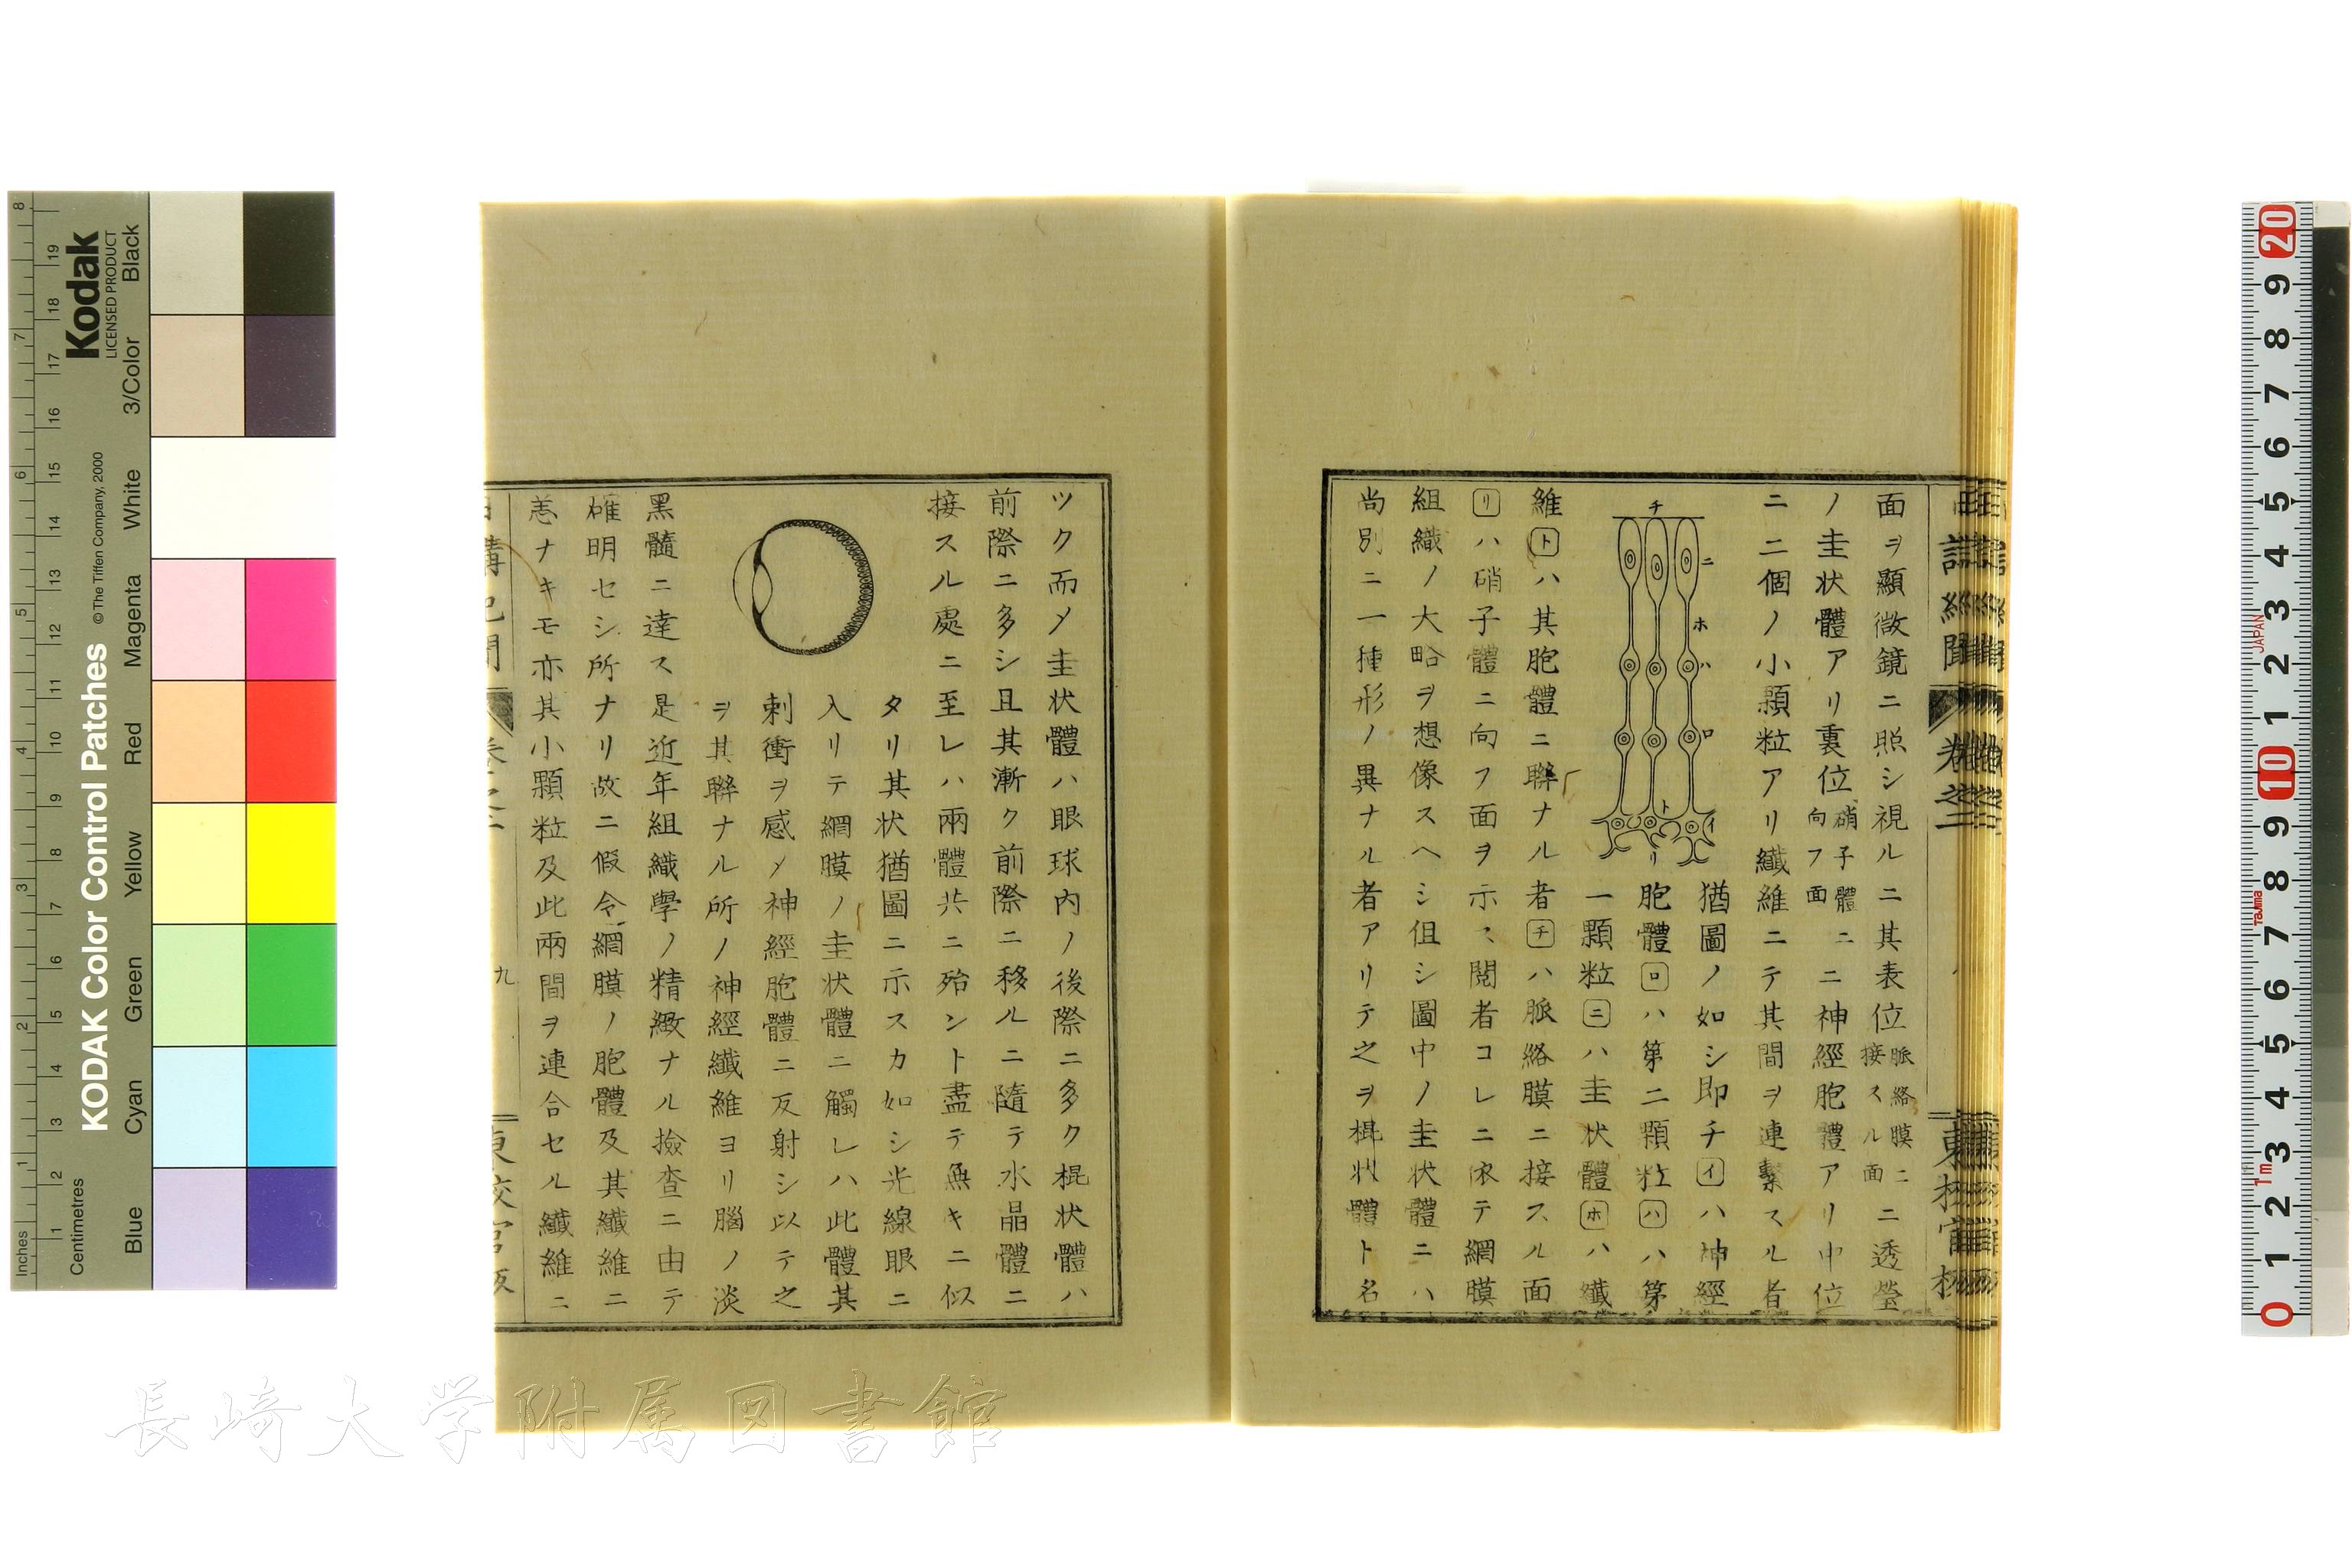 面ヲ顯微鏡ニ照シ視ルニ其表位脈絡膜ニ接スル面ニ透瑩
ノ圭状體アリ裏位硝子體ニ向フ面ニ神經胞體アリ中位
ニ二個ノ小顆粒アリ纎維ニテ其間ヲ連繋スル者
猶圖ノ如シ即チイハ神經
胞體ロハ第二顆粒ハハ第
一顆粒ニハ圭状體ホハ纎
維トハ其胞體ニ聯ナル者チハ脈絡膜ニ接スル面
リハ硝子體ニ向フ面ヲ示ス閲者コレニ依テ網膜
組織ノ大略ヲ想像スヘシ但シ圖中ノ圭状體ニハ
尚別ニ一種形ノ異ナル者アリテ之ヲ棍状體ト名
チ
ニ
ホ
ハ
ロ
ト
イ
リ
卷之二
ツク而メ圭状體ハ眼球内ノ後際ニ多ク棍状體ハ
前際ニ多シ且其漸ク前際ニ移ルニ隨テ水晶體ニ
接スル處ニ至レハ兩體共ニ殆ント盡テ無キニ似
タリ其状猶圖ニ示スカ如シ光線眼ニ
入リテ網膜ノ圭状體ニ觸レハ此體其
刺衝ヲ感メ神經胞體ニ反射シ以テ之
ヲ其聯ナル所ノ神經纎維ヨリ腦ノ淡
黑髓ニ達ス是近年組織學ノ精緻ナル撿査ニ由テ
確明セシ所ナリ故ニ假令網膜ノ胞體及其纎維ニ
恙ナキモ亦其小顆粒及此兩間ヲ連合セル纎維ニ
九
長崎大学附属図書館
KODAK Color Control Patches
© The Tiffen Company, 2000
Kodak
LICENSED PRODUCT
Inches
Centimetres
Blue
Cyan
Green
Yellow
Red
Magenta
White
3/Color
Black
JAPAN
Tajima
1m